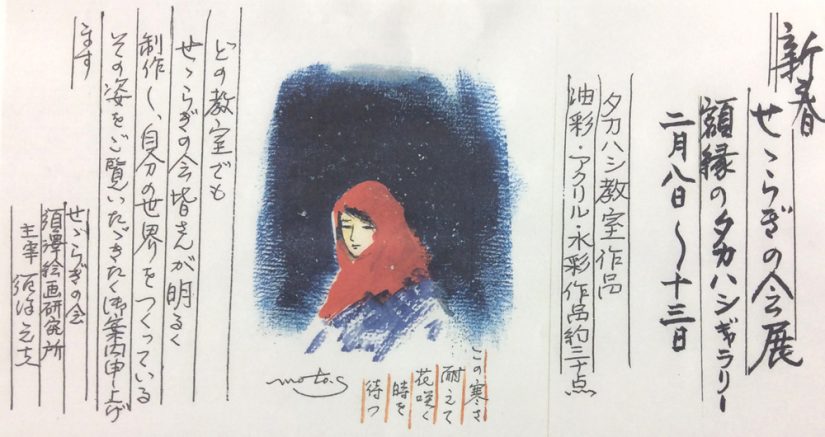 新春
せゝらぎの会展
額縁のタカハシギャラリー
二月八日〜十三日
タカハシ教室作品
油彩・アクリル・水彩作品約三十点
この寒さ
耐えて
花咲く
時を
待つ
moto.s
どの教室でも
せゝらぎの会皆さんが明るく
制作し、自分の世界をつくっている
その姿をご覧いたゞきたく御案内申し上げ
ます
せゝらぎの会
須澤絵画研究所
主宰